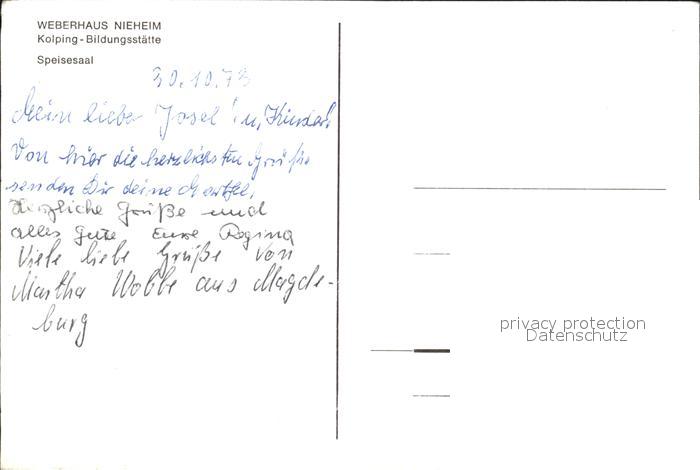 WEBERHAUS NIEHEIM
Kolping-Bildungsstätte
Speisesaal
30.10.73
Mein lieber Josef! u. Kinder!
Von hier die herzlichsten Grüße
senden Dir deine
Herzliche Grüße und
alles Gute Eure Regina
Viele liebe Grüße von
Martha Wobbe aus Magde-
burg
privacy protection
Datenschutz